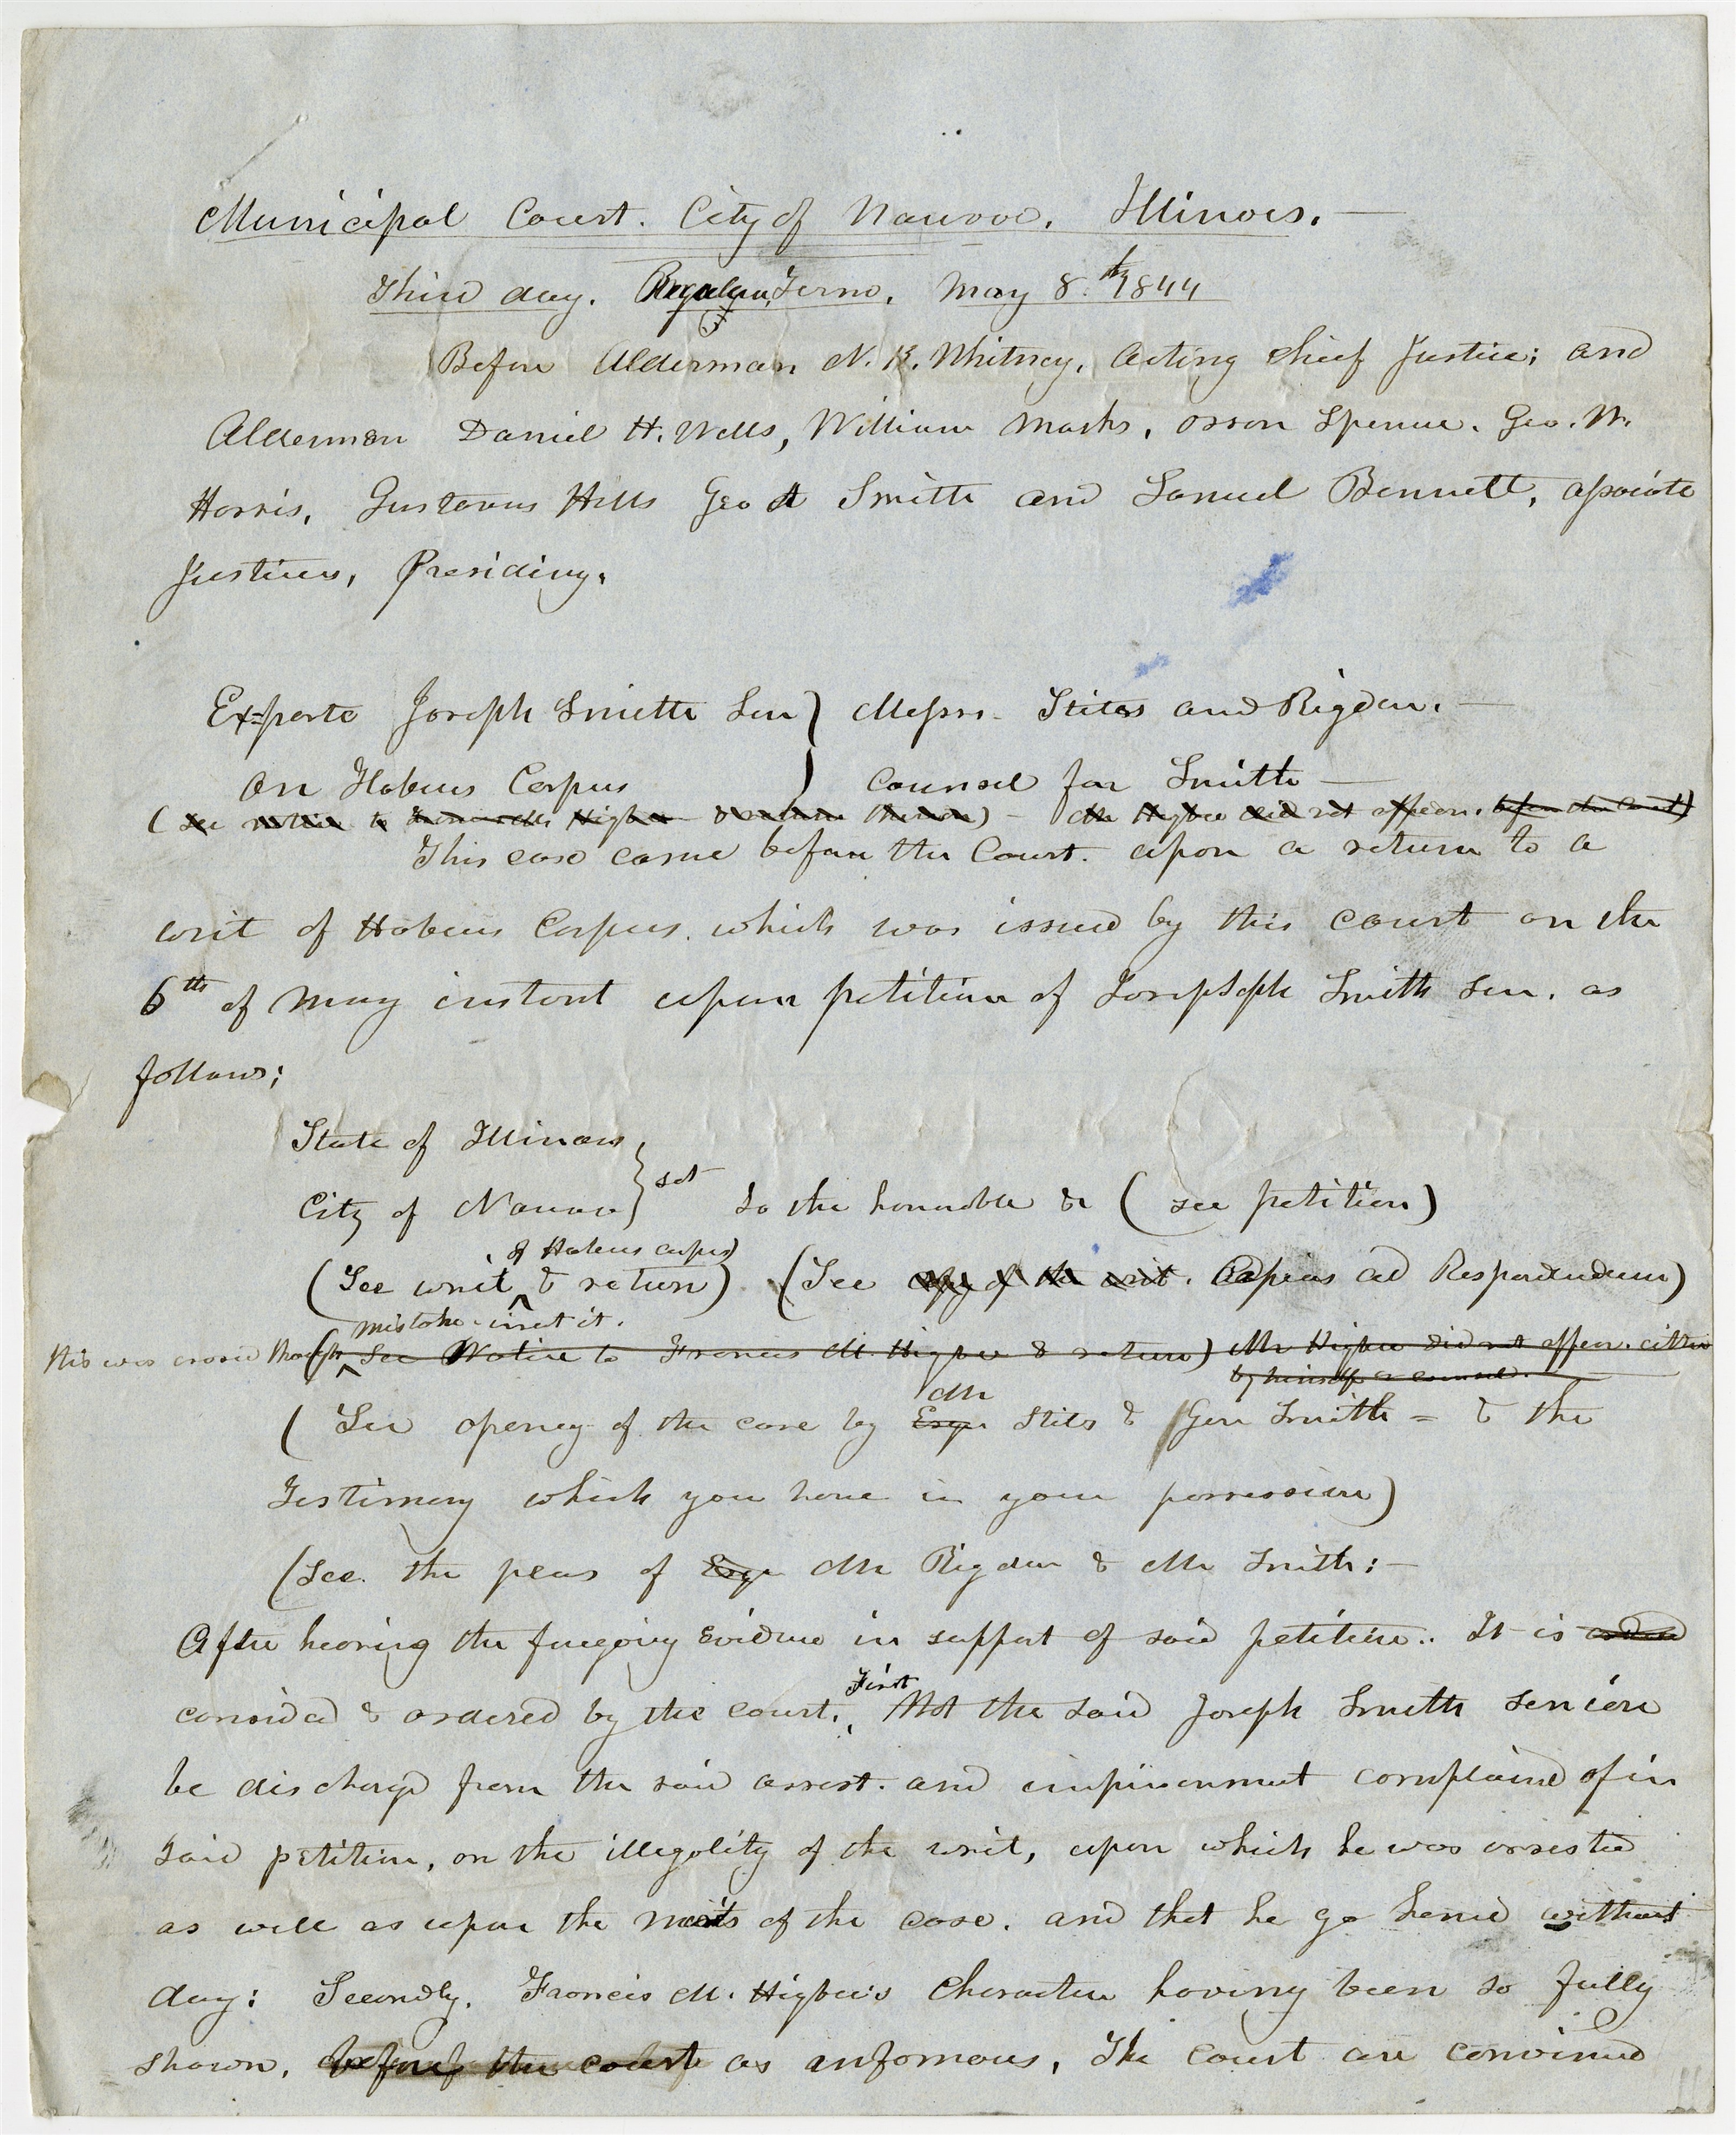 Municipal Court. City of Nauvoo. Illinois.
Third day. Regular Term. May 8.th 1844
Before Alderman N. K. Whitney, acting chief Justice; and
Aldermen Daniel H. Wells, William Marks, Orson Spencer. Geo. W.
Harris, Gustavus Hills Geo A Smith and Samuel Bennett, associate
Justices, Presiding.
Ex=parte Joseph Smith Sen } Messrs. Stites and Rigdon.
on Habeus Corpus } counsel for Smith
(see notice to Francis M. Higbee & return thereon) - Mr Higbee did not appear. before the Court)
This case came before the Court. upon a return to a
writ of Habeus Corpus. which was issued by this court on the
6th of May instant upon petition of Josepseph Smith sen. as
follows;
State of Illinois
City of Nauvoo } sct To the honorable &c (see petition)
of Habeus corpus)
(See writ & return) (See copy of the writ. Capias ad Respondendum)
mistake - insert it.
this was crossed through (See Notice to Francis M. Higbee & return) Mr Higbee did not appear. either
by himself or counsel.
Mr
(See openeg of the case by Esqr Stiles & Gen Smith = & the
Testimony which you have in your possession)
(See. the pleas of Esqr Mr Rigdon & Mr Smith:
After hearing the foregoing Evidence in support of said petition.. It is ordered
First
considerd & ordered by the court. that the said Joseph Smith senior
be dischargd from the said arrest. and imprisonment complaind of in
said petition, on the illegality of the writ, upon which he was arrested
as well as upon the merits of the case. and that he go hence without
day: Secondly. Francis M. Higbee's character having been so fully
shown, before the court as infamous, The court are convinced